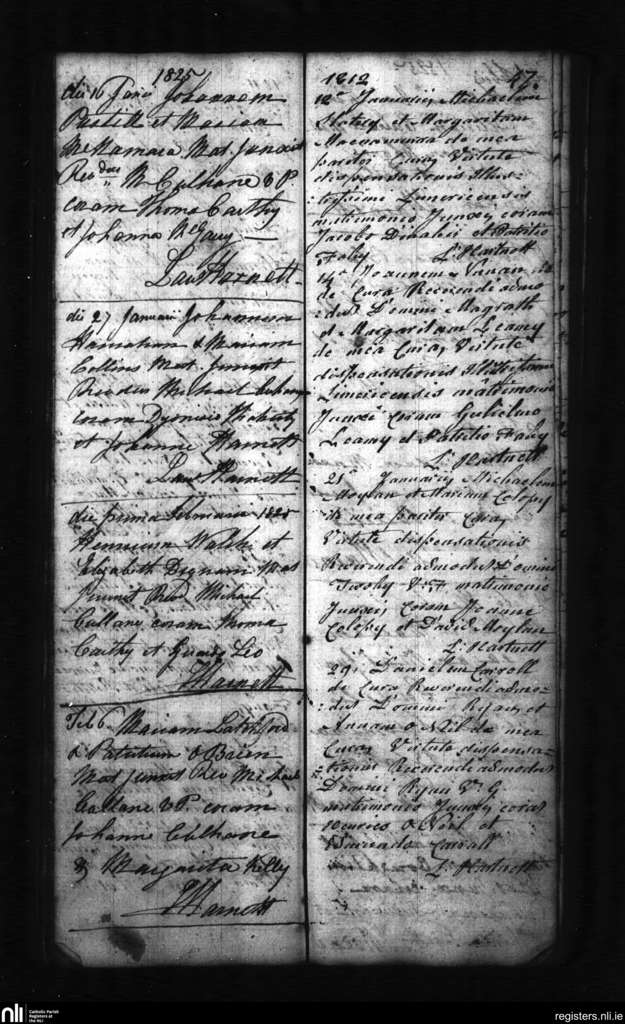 1825
die 16 Janii Johannem
et Mariam
McNamara Mat. Junxit
Revdus M Culhane V P
coram Thoma Carthy
et Johanna
Laur Harnett
die 27 Januarii Johannem
Hanrahan & Mariam
Collins Mat. Junxit
Revdus Michael
coram Dyonisio
et Johanne Harnett
Laur Harnett
die prima Februarii 1825
Henricum Walsh et
Elizabeth Dignam Mat
Junxit Revd Michael
Cullane coram Thoma
Carthy et Leo
Harnett
Feb 6 Mariam
& Patritium O Brien
Mat Junxit Rev Michael
Cullane V P. coram
Johanne Culhane
& Margarita Kelly
Harnett
1812 47
12a Januarii Michaelem
Slattery et Margaritam
Macnamara de mea
pariter Cura, Virtute
dispensationis Illus-
trissimi Limericensis
matrimonio Junxi, coram
Jacobo et Patritio
Fahy L. Hartnett
14a Joannem
de Cura Reverendi admo
dum Domini Magrath
et Margaritam Leamy
de mea Cura, Virtute
dispensationis Illustrissimi
Limericensis matrimonio
Junxi Coram Gulielmo
Leamy et Patritio Fahy
L. Hartnett
21a Januarii Michaelem
Moylan et Mariam Colopy
de mea pariter Cura,
Virtute dispensationis
Reverendi admodum Domini
Twohy V:G matrimonio
Junxi, Coram Joanne
Colopy et David Moylan
L. Hartnett
29: Danielem Carroll
de Cura Reverendi admo-
dum Domini Ryan, et
Annam O Neil de mea
Cura, Virtute dispensa-
tionis Reverendi admodum
Domini Ryan V: G
matrimonio Junxi, coram
Henrico O Neil et
Carroll
L: Hartnett
nli
Catholic Parish
Registers at
the NLI
registers.nli.ie